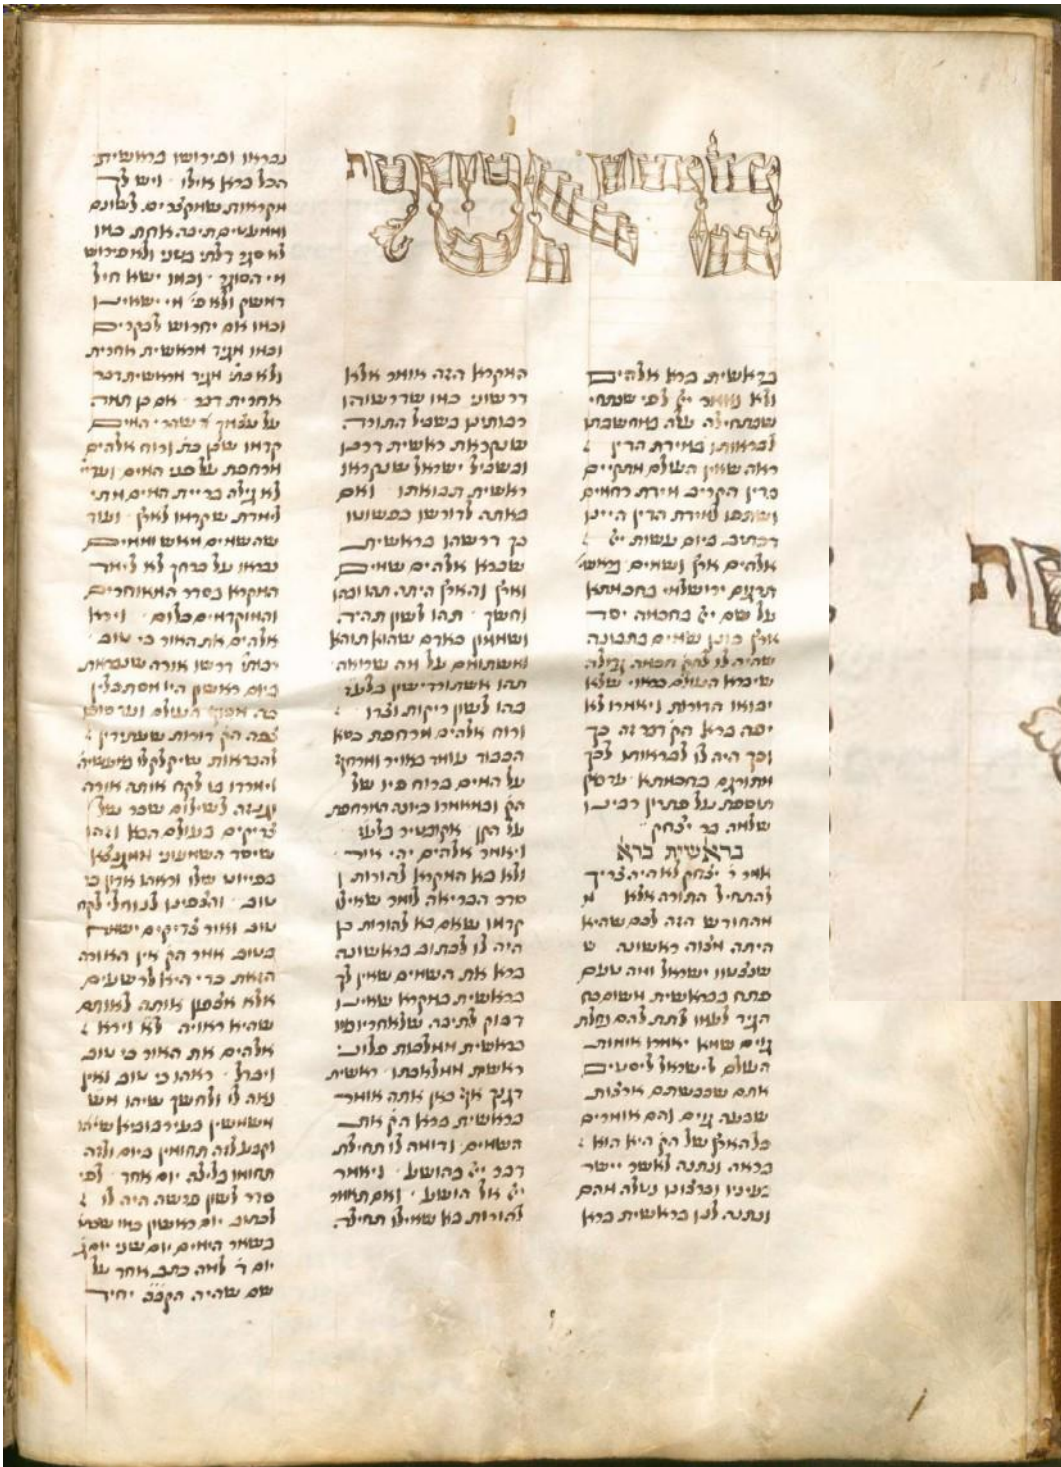 בראשית ברא אלהים
ולא נאמר יי לפי שבתחי
שבתחילה עלה במחשבתו
לבראותו במידת הדין
ראה שאין העולם מתקיים
בדין הקדים מידת רחמים
ושתפו למידת הדין היינו
דכתיב ביום עשות יי
אלהים ארץ ושמים
תרגום ירושלמי בחכמתא
על שם יי בחכמה יסד
ארץ כונן שמים בתבונה
שהיה לו להק חכמה גדולה
שיברא העולם כראוי שלא
יבואו הדורות ויאמרו לא
יפה ברא הק דבר זה כך
וכך היה לו לבראותו לכך
מתורגם בחכמתא
תוספת על פתרון רבינו
שלמה בר יצחק
בראשית ברא
אמר ר יצחק לא היה צריך
להתחיל התורה אלא מ
מהחודש הזה לכם שהיא
היתה מצוה ראשונה ש
שנצטוו ישראל ומה טעם
פתח בבראשית משום כח
הגיד לעמו לתת להם נחלת
גוים שמא יאמרו אומות
העולם לישראל ליסטים
אתם שכבשתם ארצות
שבעה גוים והם אומרים
כל הארץ של הק היא הוא
בראה ונתנה לאשר יישר
בעיניו וברצונו נטלה מהם
ונתנה לנו בראשית ברא
המקרא הזה אומר אלא
דרשוני כמו שדרשוהו
רבותינו בשביל התורה
שנקראת ראשית דרכו
ובשביל ישראל שנקראו
ראשית תבואתו ואם
באתה לדורשו כפשוטו
כך דרשהו בראשית
שברא אלהים שמים
וארץ והארץ היתה תהו ובהו
וחשך תהו לשון תהיה
ושממון כאדם שהוא תוהא
ומשתומם על מה שרואה
תהו אשתורדישון בלעז
בהו לשון ריקות וצדו
ורוח אלהים מרחפת כסא
הכבוד עומד באויר ומרחף
על המים ברוח פיו של
הק ובמאמרו כיונה המרחפת
על הקן אקובטיר בלעז
ויאמר אלהים יהי אור
ולא בא המקרא להורות
סדר הבריאה לומר שאילו
קדמו שאם בא להורות כן
היה לו לכתוב בראשונה
ברא את השמים שאין לך
בראשית במקרא שאינו
דבוק לתיבה שלאחריו כמו
בראשית ממלכות
ראשית ממלכתו ראשית
דגנך אף כאן אתה אומר
בראשית ברא הק את
השמים ודומה לו תחילת
דבר יי בהושע ויאמר
יי אל הושע ואם תאמר
להורות בא שאילו תחילה
נבראו ופירושו בראשית
הכל ברא אילו ויש לך
מקראות שמקצרים לשונם
וממעטים תיבה אחת כמו
לא סגר דלתי בטני ולא פירוש
מי הסוגר וכמו ישא חיל
דמשק ולא פי מי ישאינו
וכמו אם יחרוש בבקרים
וכמו מגיד מראשית אחרית
ולא כת מגיד מראשית דבר
אחרית דבר אם כן תמה
על עצמך שהרי המים
קדמו שכן כת ורוח אלהים
מרחפת על פני המים ועדיי
לא גילה בריית המים מתי
למדת שקדמו לארץ ועוד
שהשמים מאש וממים
נבראו על כרחך לא לימד
המקרא בסדר המאוחרים
והמוקדמים כלום וירא
אלהים את האור כי טוב
רבותי דרשו אורה שנבראת
ביום ראשון היו מסתכלין
בה מסוף העולם ועד סופו
צפה הק דורות שעתידין
להבראות שיקלקלו מעשיה
וימרדו בו לקח אותה אורה
וגנזה לשילום שכר של
צדיקים בעולם הבא וזהו
שיסד השמעוני ממגנצא
בפייוט שלו וראהו אדון כי
טוב והצפינו לנוחלי לקח
טוב ואור צדיקים ישמח
בטוב אמר הק אין האורה
הזאת כדי היא לרשעים
אלא אצפון אותה לאותם
שהיא ראויה להם וירא
אלהים את האור כי טוב
ויבדל ראהו כי טוב ואין
נאה לו ולחשך שיהו מש
משמשין בעירבוביא שיהו
וקבע לזה תחומין ביום ולזה
תחומו בלילה יום אחד לפי
סדר לשון פרשה היה לו
לכתוב יום ראשון כמו שכת
בשאר הימים יום שני יום ג
יום ד למה כתב אחד על
שם שהיה הקבה יחיד